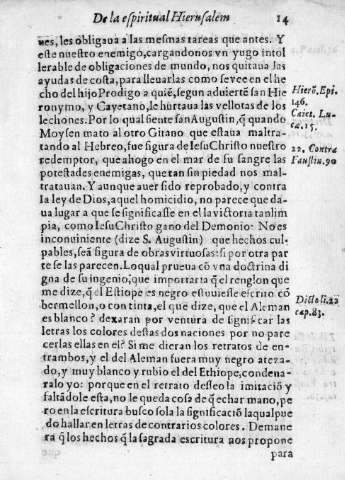 De la espiritual Hierusalem
14
ues, les obligaua a las mesmas tareas que antes. Y
este nuestro enemigo, cargandonos vn yugo intol
lerable de obligaciones de mundo, nos quitaua las
ayudas de costa, para lleuarlas como se vee en el he
cho del hijo Prodigo a quiē, segun aduierte san Hie
ronymo, y Cayetano, le hurtaua las vellotas de los
lechones. Por lo qual siente san Augustin, q̄ quando
Moysen mato al otro Gitano que estaua maltra-
tando al Hebreo, fue figura de Iesu Christo nuestro
redemptor, que ahogo en el mar de su sangre las
potestades enemigas, que tan sin piedad nos mal-
tratauan. Y aunque auer sido reprobado, y contra
la ley de Dios, aquel homicidio, no parece que da-
ua lugar a que se significasse en el la victoria tan lim
pia, como Iesu Christo gano del Demonio: No es
inconuiniente (dize S. Augustin) que hechos cul-
pables, seā figura de obras virtuosas: si por otra par
te se las parecen. Lo qual prueua cō vna doctrina di
gna de su ingenio, que importaria q̄ el renglon que
me dize, q̄ el Estiope es negro estuuiesse escrito cō
bermellon, o con tinta, el que dize, que el Aleman
es blanco? dexaran por ventura de significar las
letras los colores destas dos naciones por no pare
cerlas ellas en el? Si me dieran los retratos de en-
trambos, y el del Aleman fuera muy negro ateza-
do, y muy blanco y rubio el del Ethiope, condena-
ralo yo: porque en el retrato desseo la imitació y
faltādole esta, no le queda cosa de q̄ echar mano, pe
ro en la escritura busco sola la significació la qual pue
do hallar en letras de contrarios colores. De mane
ra q̄ los hechos q̄ la sagrada escritura nos propone
para
Hierō. Epi.
146.
Caiet. Lu-
ca. 15.
22. Contra
Faustin. 90
Dicto li. 22
cap. 83.